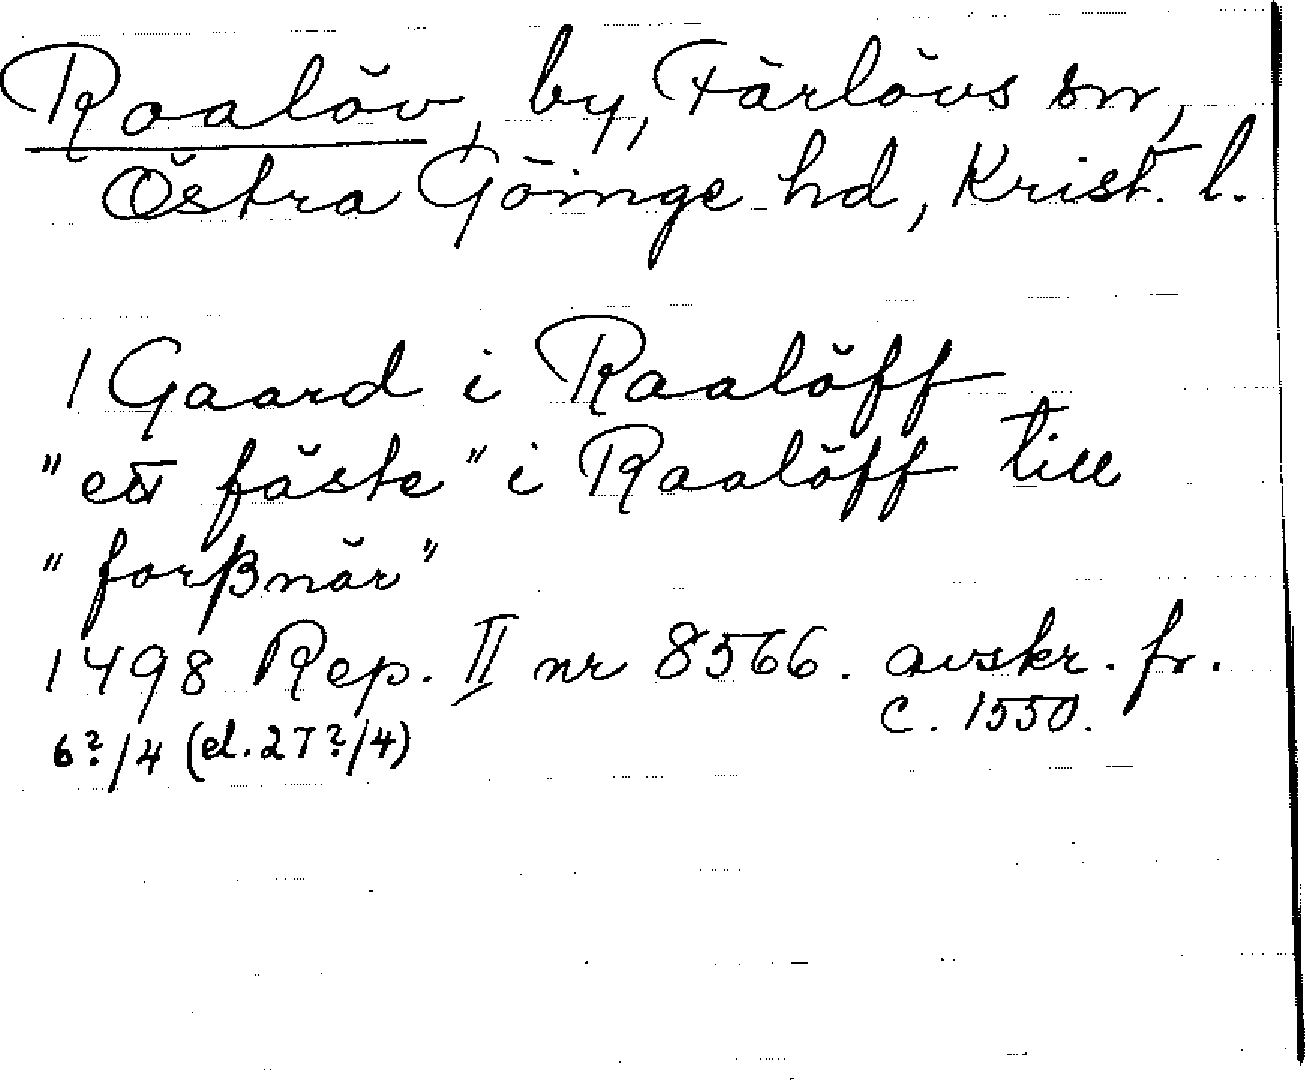 Raalöv, by, Färlövs sn,
Östra Göinge hd, Krist. l.
1 Gaard i Raalöff
"ett fäste" i Raalöff till
"forßnär"
1498 Rep. II nr 8566. avskr. fr.
c. 1550.
6?/4 (el. 27?/4)